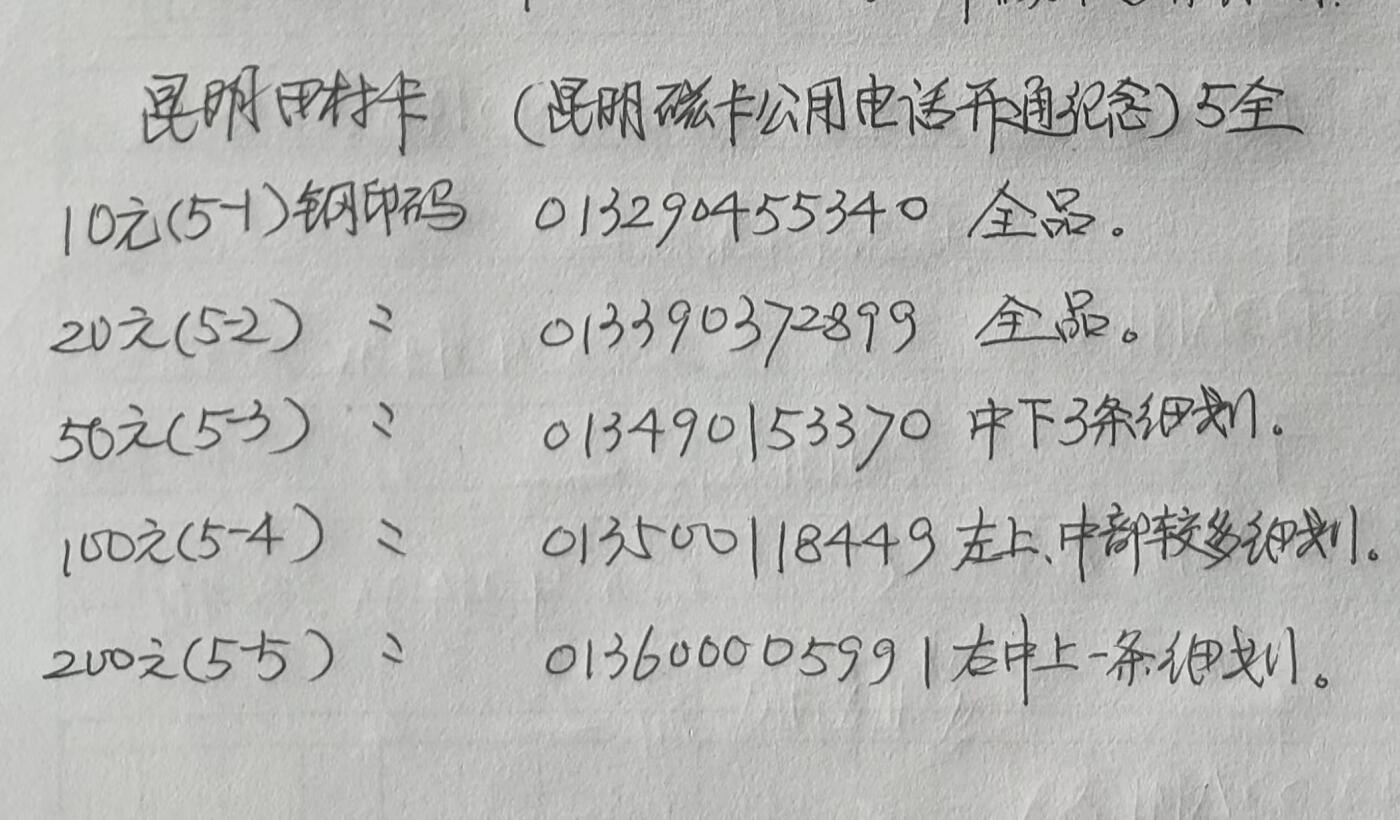 昆明田村卡 (昆明磁卡公用电话开通纪念)5全
10元(5-1)钢印码 013290455340 全品。
20元(5-2) 〃 013390372899 全品。
50元(5-3) 〃 013490153370 中下3条细划。
100元(5-4) 〃 013500118449 左上、中部较多细划。
200元(5-5) 〃 013600005991 右中上一条细划。